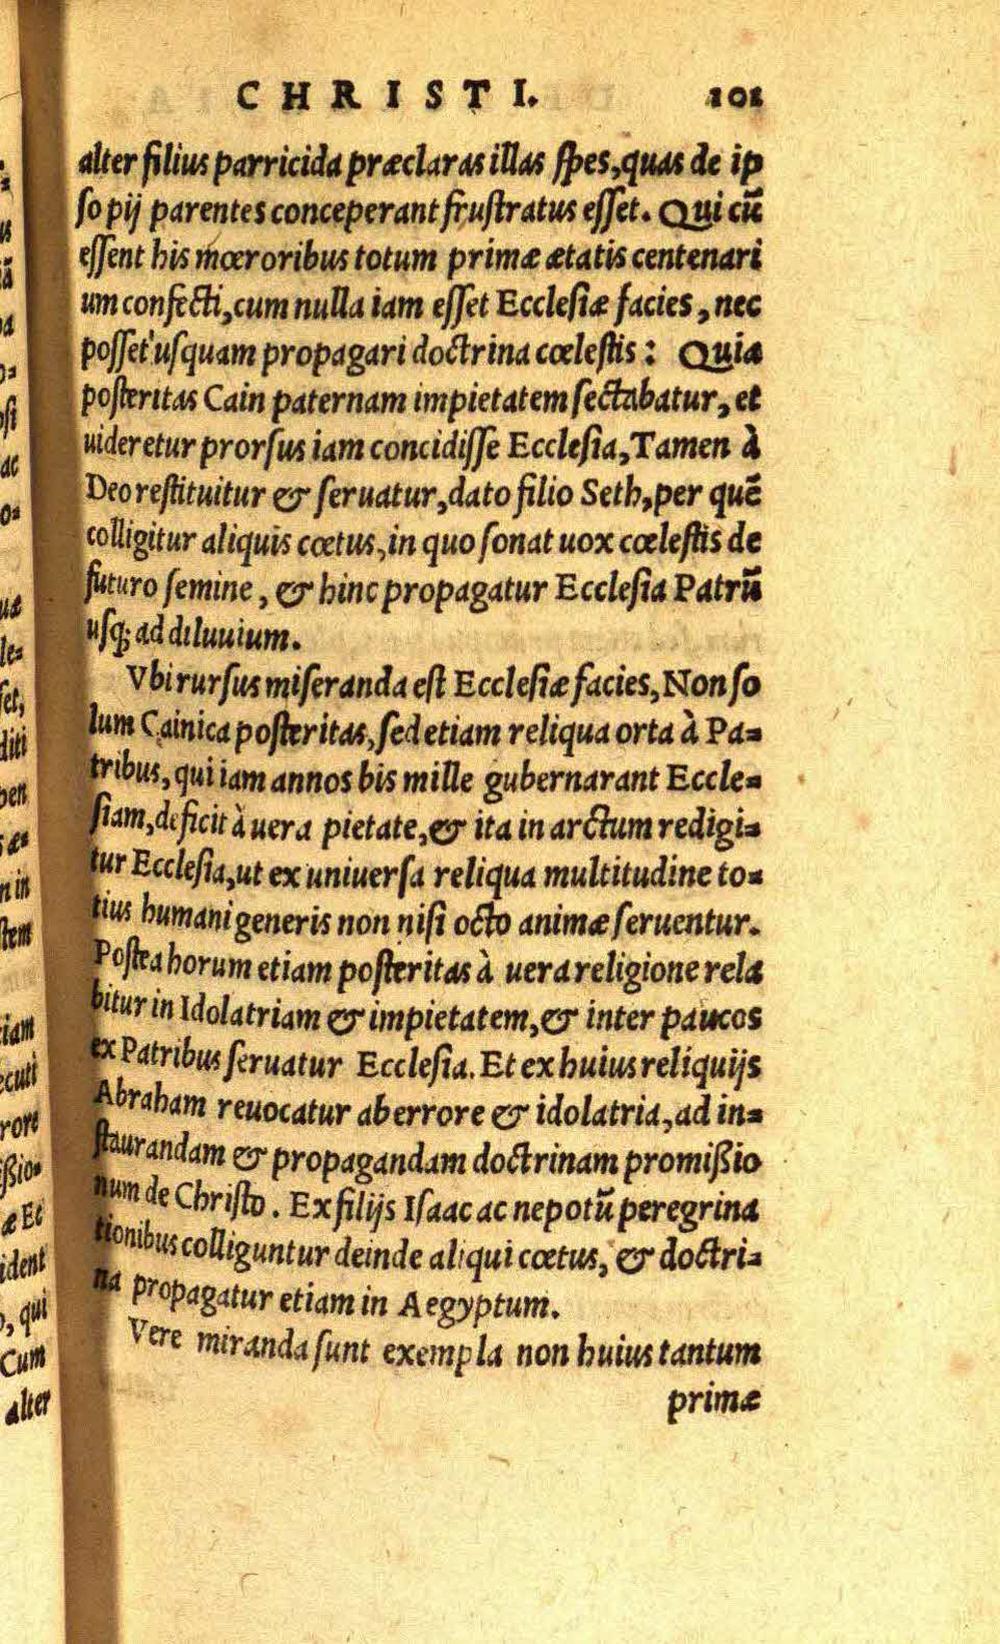 CHRISTI. 101
alter filius parricida præclaras illas spes, quas de ip
so pij parentes conceperant frustratus esset. Qui cũ
essent his mœroribus totum primæ ætatis centenari
um confecti, cum nulla iam esset Ecclesiæ facies, nec
posset usquam propagari doctrina cœlestis: Quia
posteritas Cain paternam impietatem sectabatur, et
uideretur prorsus iam concidisse Ecclesia, Tamen à
Deo restituitur & seruatur, dato filio Seth, per quẽ
colligitur aliquis cœtus, in quo sonat uox cœlestis de
futuro semine, & hinc propagatur Ecclesia Patrũ
usq; ad diluuium.
Vbi rursus miseranda est Ecclesiæ facies, Non so
lum Cainica posteritas, sed etiam reliqua orta à Pa-
tribus, qui iam annos bis mille gubernarant Eccle-
siam, deficit à uera pietate, & ita in arctum redigi-
tur Ecclesia, ut ex uniuersa reliqua multitudine to-
tius humani generis non nisi octo animæ seruentur.
Postea horum etiam posteritas à uera religione rela
bitur in Idolatriam & impietatem, & inter paucos
ex Patribus seruatur Ecclesia. Et ex huius reliquijs
Abraham reuocatur ab errore & idolatria, ad in-
staurandam & propagandam doctrinam promißio
num de Christo. Ex filijs Isaac ac nepotũ peregrina
tionibus colliguntur deinde aliqui cœtus, & doctri-
na propagatur etiam in Aegyptum.
Vere miranda sunt exempla non huius tantum
primæ
ac
let,
diti
n in
stem
iam
ecuti
rore
ßio-
æ Et
ident
qui
Cum
alter